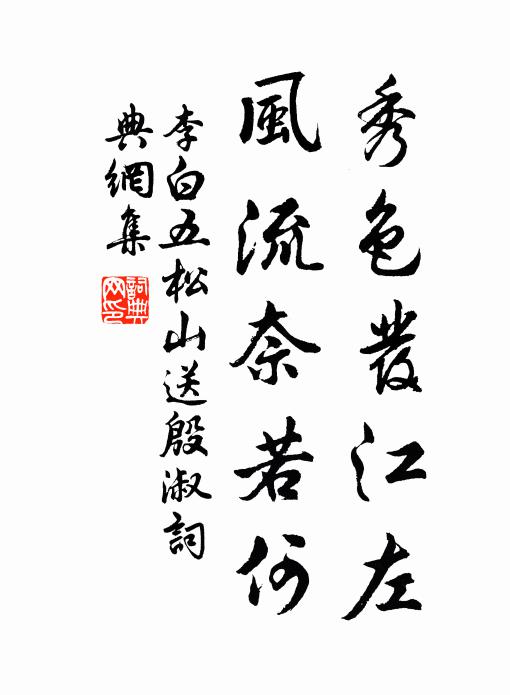 秀色發江左
風流奈若何
李白五松山送殷淑詞
典網集
詞典
网印